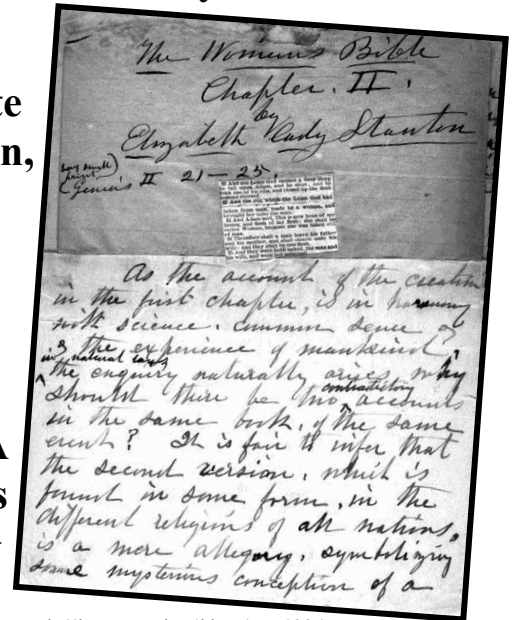 te
n,
The Woman's Bible
Chapter. II.
by
Elizabeth Cady Stanton
Genesis II 21-25.
taken from man, made he a woman, and
brought her unto the man.
As the account of the creation
in the first chapter, is in harmony
with science, common sense &
& the experience of mankind
in natural laws
the enquiry naturally arises, why
contradictory
should there be two accounts
in the same book, of the same
event? It is fair to infer that
the second version, which is
found in some form, in the
different religions of all nations,
is a mere allegory, symbolizing
some mysterious conception of a
A
s